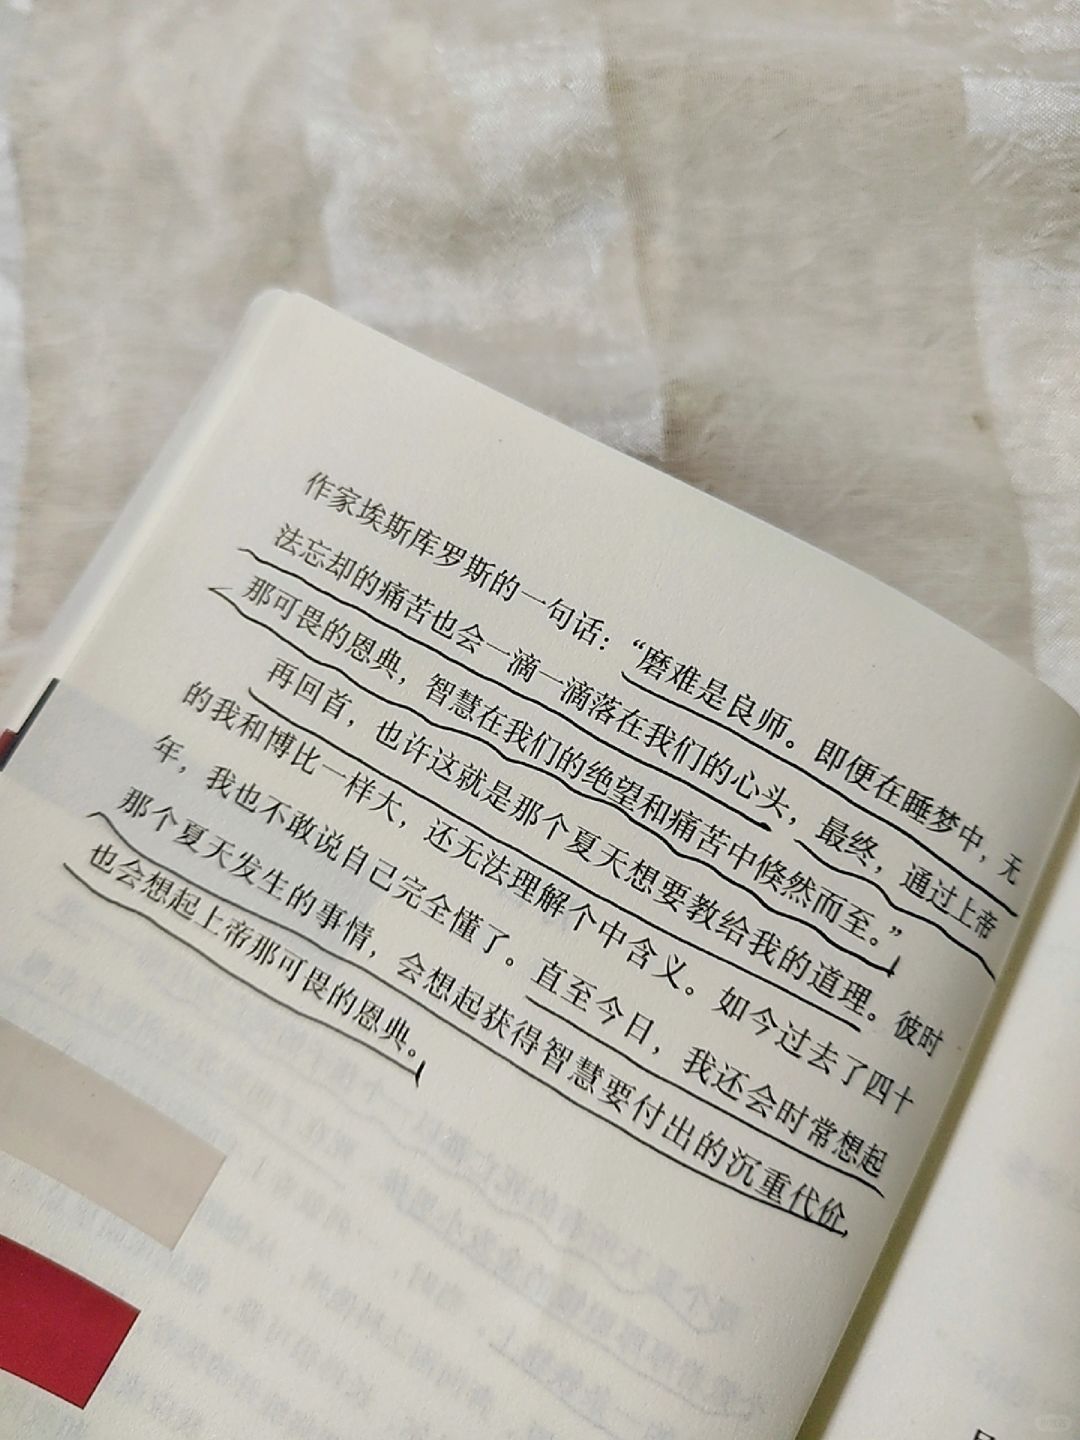 作家埃斯库罗斯的一句话：“磨难是良师。即便在睡梦中，无
法忘却的痛苦也会一滴一滴落在我们的心头，最终，通过上帝
那可畏的恩典，智慧在我们的绝望和痛苦中倏然而至。”
再回首，也许这就是那个夏天想要教给我的道理。彼时
的我和博比一样大，还无法理解个中含义。如今过去了四十
年，我也不敢说自己完全懂了。直至今日，我还会时常想起
那个夏天发生的事情，会想起获得智慧要付出的沉重代价，
也会想起上帝那可畏的恩典。